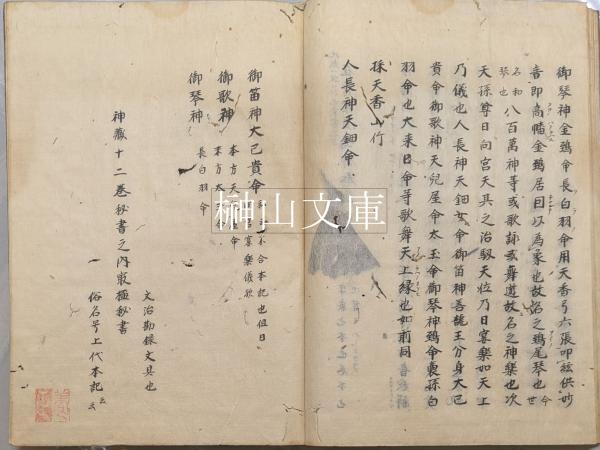 御琴神金鵄命長白羽命用天香弓六張叩絃供妙
音即高幡金鵄居因以為象也故名之鵄尾琴也今世
名和琴也八百万神等或歌詠或舞遊故名之神楽也次
天孫尊日向宮天具之治馭天位乃日宴楽如天上
乃儀也人長神天鈿女命御笛神善竜王分身大己
貴命御歌神天児屋命太玉命御琴神鵄命裏孫白
羽命也大来目命等歌舞天上縁也如前同
孫天香山行
人長神天鈿命
御笛神大己貴命
御歌神 本方天 命
末方太玉命
御琴神 長白羽命
神蔵十二巻秘書之内最極秘書
文治勘録文具也
俗名号上代本記云云
榊山文庫